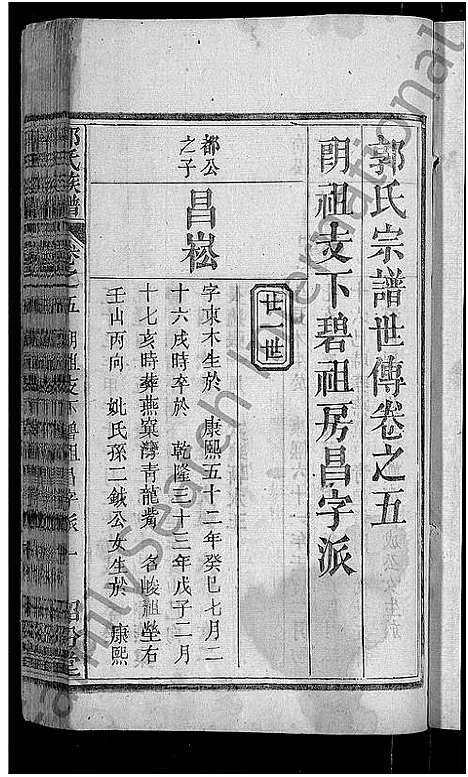 郭氏宗譜世傳卷之五
朗祖支下碧祖房昌字派
廿一世
都公
之子
昌崧
字東木生於 康熙五十二年癸巳七月二
十六戌時卒於 乾隆三十三年戊子二月
十七亥時葬燕窩灣青龍嘴 名峻祖塋右
壬山丙向 妣氏孫二鉞公女生於 康熙
郭氏族譜
卷之五 朗祖支下碧祖昌字派 一
FamilySearch International